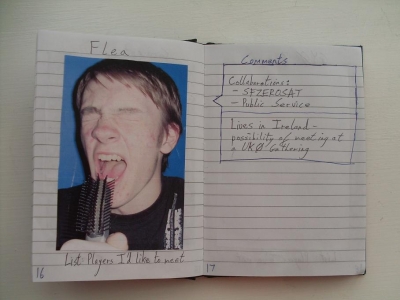 Flea
List Players I'd like to meet
16
Comments
Collaborations:
- SFZEROSAT
- Public Service
Lives in Ireland -
possibility of meeting at
a UKØ Gathering
17